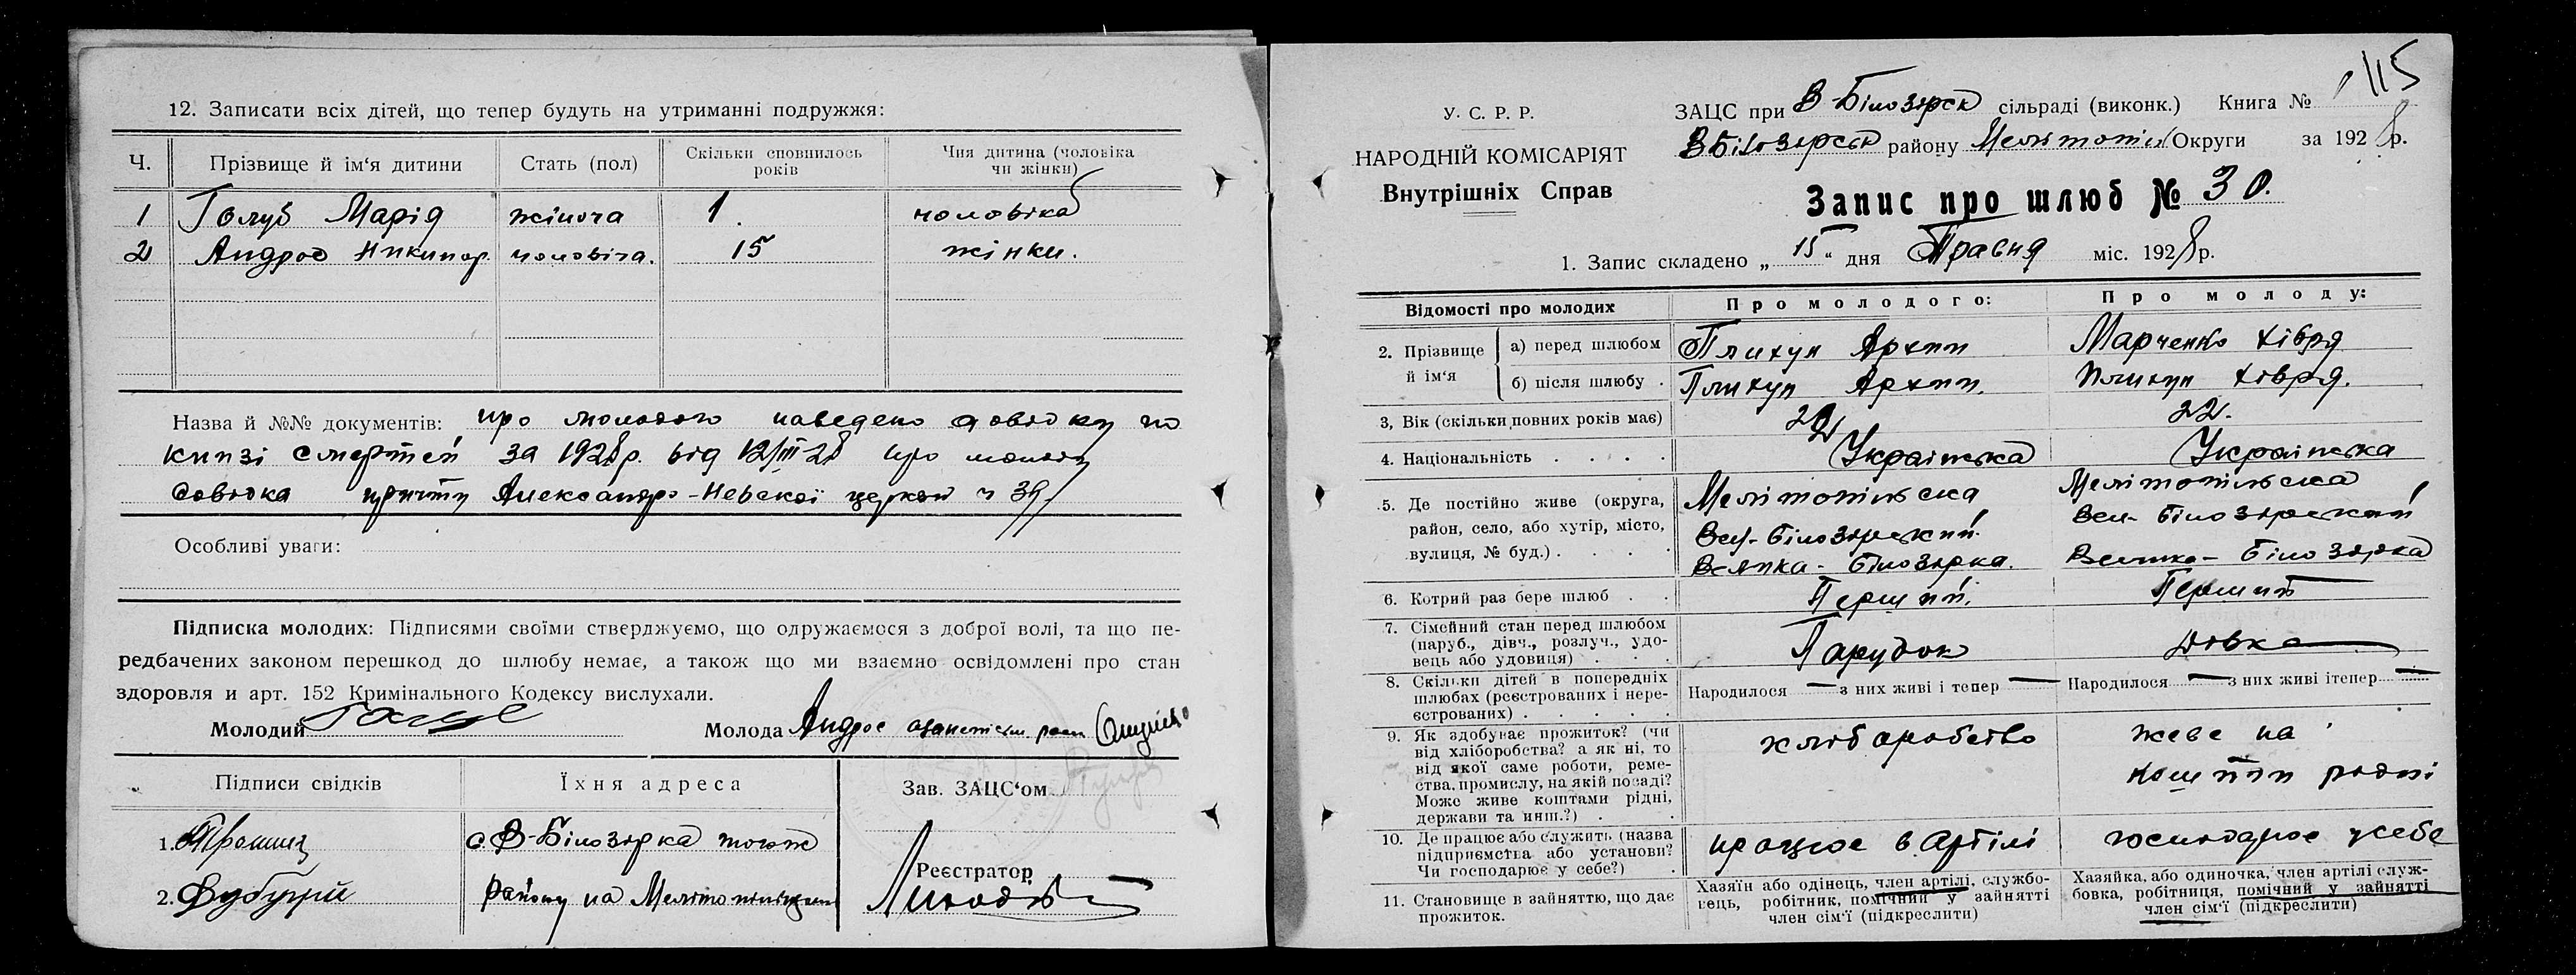 12. Записати всіх дітей, що тепер будуть на утриманні подружжя:
Ч. Прізвище й ім'я дитини Стать (пол) Скільки сповнилось років Чия дитина (чоловіка чи жінки)
1 Голуб Марія жіноча 1. чоловіка
2 Андрос Никипор. чоловіча. 15 жінки.
Назва й №№ документів: про молодого наведено довідку по
книзі смертей за 1928 р. від 12/III-28 про молоду
довідка причту Александро-Невської церкви ч 39.
Особливі уваги:
Підписка молодих: Підписями своїми стверджуємо, що одружаємося з доброї волі, та що пе-
редбачених законом перешкод до шлюбу немає, а також що ми взаємно освідомлені про стан
здоровля и арт. 152 Кримінального Кодексу вислухали.
Молодий Молода Андрос
Підписи свідків Їхня адреса Зав. ЗАЦС'ом
1. с. В-Білозірка тогож
2. району на Мелітопільщині
Реєстратор
115
У. С. Р. Р.
НАРОДНІЙ КОМІСАРІЯТ
Внутрішніх Справ
ЗАЦС при В-Білозірськ сільраді (виконк.) Книга №
ВБілозірськ району Мелітопіл Округи за 1928 р.
Запис про шлюб № 30.
1. Запис складено „ 15 " дня Травня міс. 1928 р.
Відомості про молодих Про молодого: Про молоду:
2. Прізвище й ім'я
а) перед шлюбом Плихун Архип Марченко Хівря
б) після шлюбу . Плихун Архип. Плихун Хівря.
3, Вік (скільки повних років має) 22 22.
4. Національність . . . . Українська Українська
5. Де постійно живе (округа, район, село, або хутір, місто, вулиця, № буд.) . . . .
Мелітопільська Мелітопільська
Вел-Білозірський. Вел-Білозірський
Велика-Білозірка. Велика-Білозірка
6. Котрий раз бере шлюб . . Перший. Перший
7. Сімейний стан перед шлюбом (паруб., дівч., розлуч., удовець або удовиця) . . . Парубок Дівка
8. Скільки дітей в попередніх шлюбах (реєстрованих і нереєстрованих) . . . . . Народилося — з них живі і тепер — Народилося — з них живі ітепер —
9. Як здобуває прожиток? (чи від хліборобства? а як ні, то від якої саме роботи, ремества, промислу, на якій посаді? Може живе коштами рідні, держави та инш.?) . хліборобство живе на кошти рідні
10. Де працює або служить (назва підприємства або установи? Чи господарює у себе?) . працює в артілі господарює усебе
11. Становище в зайняттю, що дає прожиток.
Хазяїн або одінець, член артілі, службовець, робітник, помічний у зайнятті член сім'ї (підкреслити)
Хазяйка, або одиночка, член артілі службовка, робітниця, помічний у зайнятті член сім'ї (підкреслити)